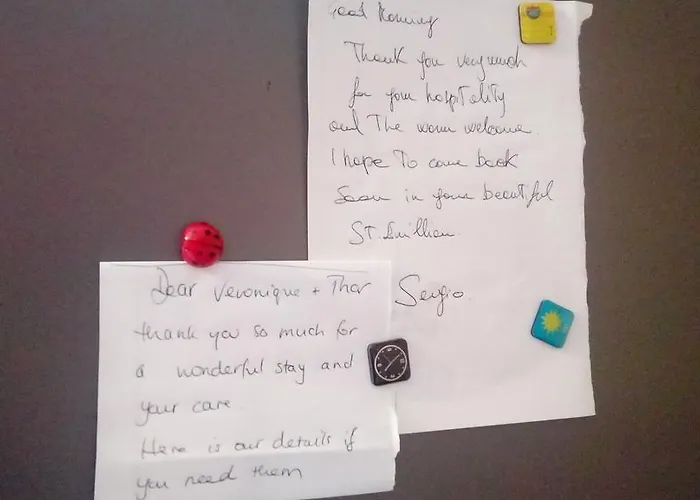 Good Morning
Thank you very much
for your hospitality
and The warm welcome.
I hope To come back
Soon in your beautiful
ST.
Sergio.
Dear Veronique + Thor
thank you so much for
a wonderful stay and
your care.
Here is our details if
you need them